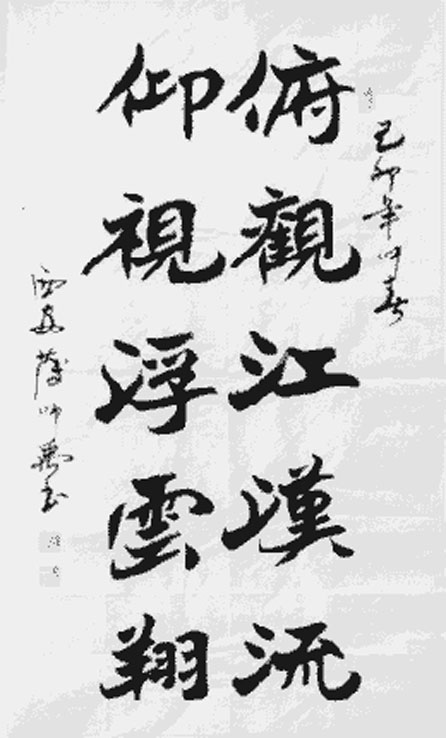 己卯年仲春
俯觀江漢流
仰視浮雲翔
西安